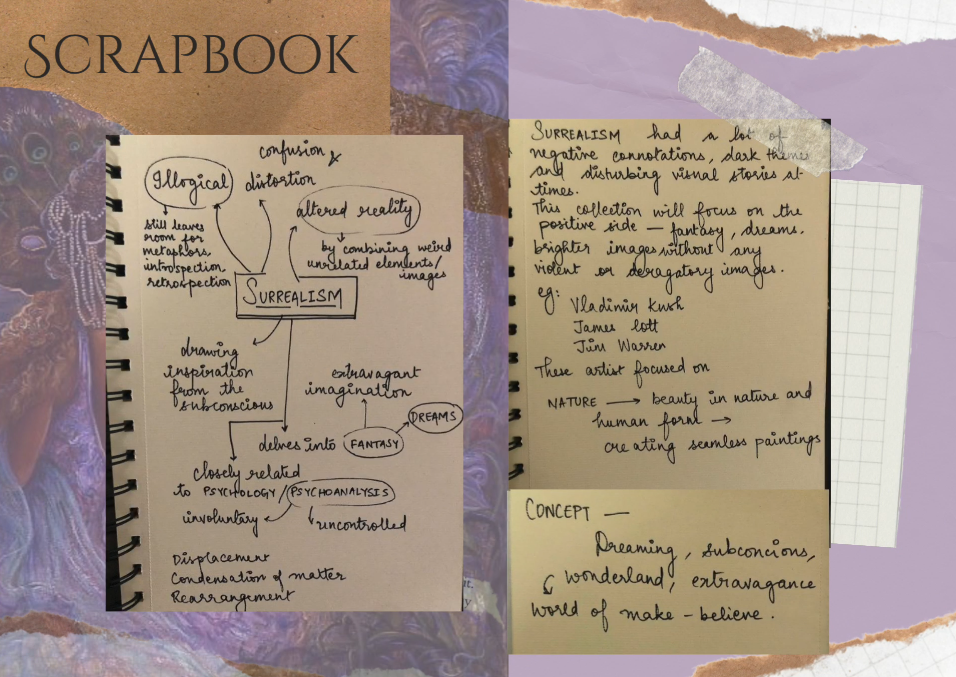 SCRAPBOOK
confusion &
Illogical
distortion
altered reality
still leaves
room for
metaphors,
introspection,
retrospection
by combining weird
unrelated elements/
images
SURREALISM
drawing
inspiration
from the
subconscious
extravagant
imagination
DREAMS
delves into FANTASY
closely related
to PSYCHOLOGY / PSYCHOANALYSIS
involuntary
uncontrolled
Displacement
Condensation of matter
Rearrangement
SURREALISM had a lot of
negative connotations, dark themes
and disturbing visual stories at
times.
This collection will focus on the
positive side — fantasy, dreams,
brighter images without any
violent or deragatory images.
eg:
Vladimir Kush
James Lott
Jim Warren
These artist focused on
NATURE → beauty in nature and
human form →
creating seamless paintings
CONCEPT —
Dreaming, subconcious,
wonderland, extravagance
world of make-believe.